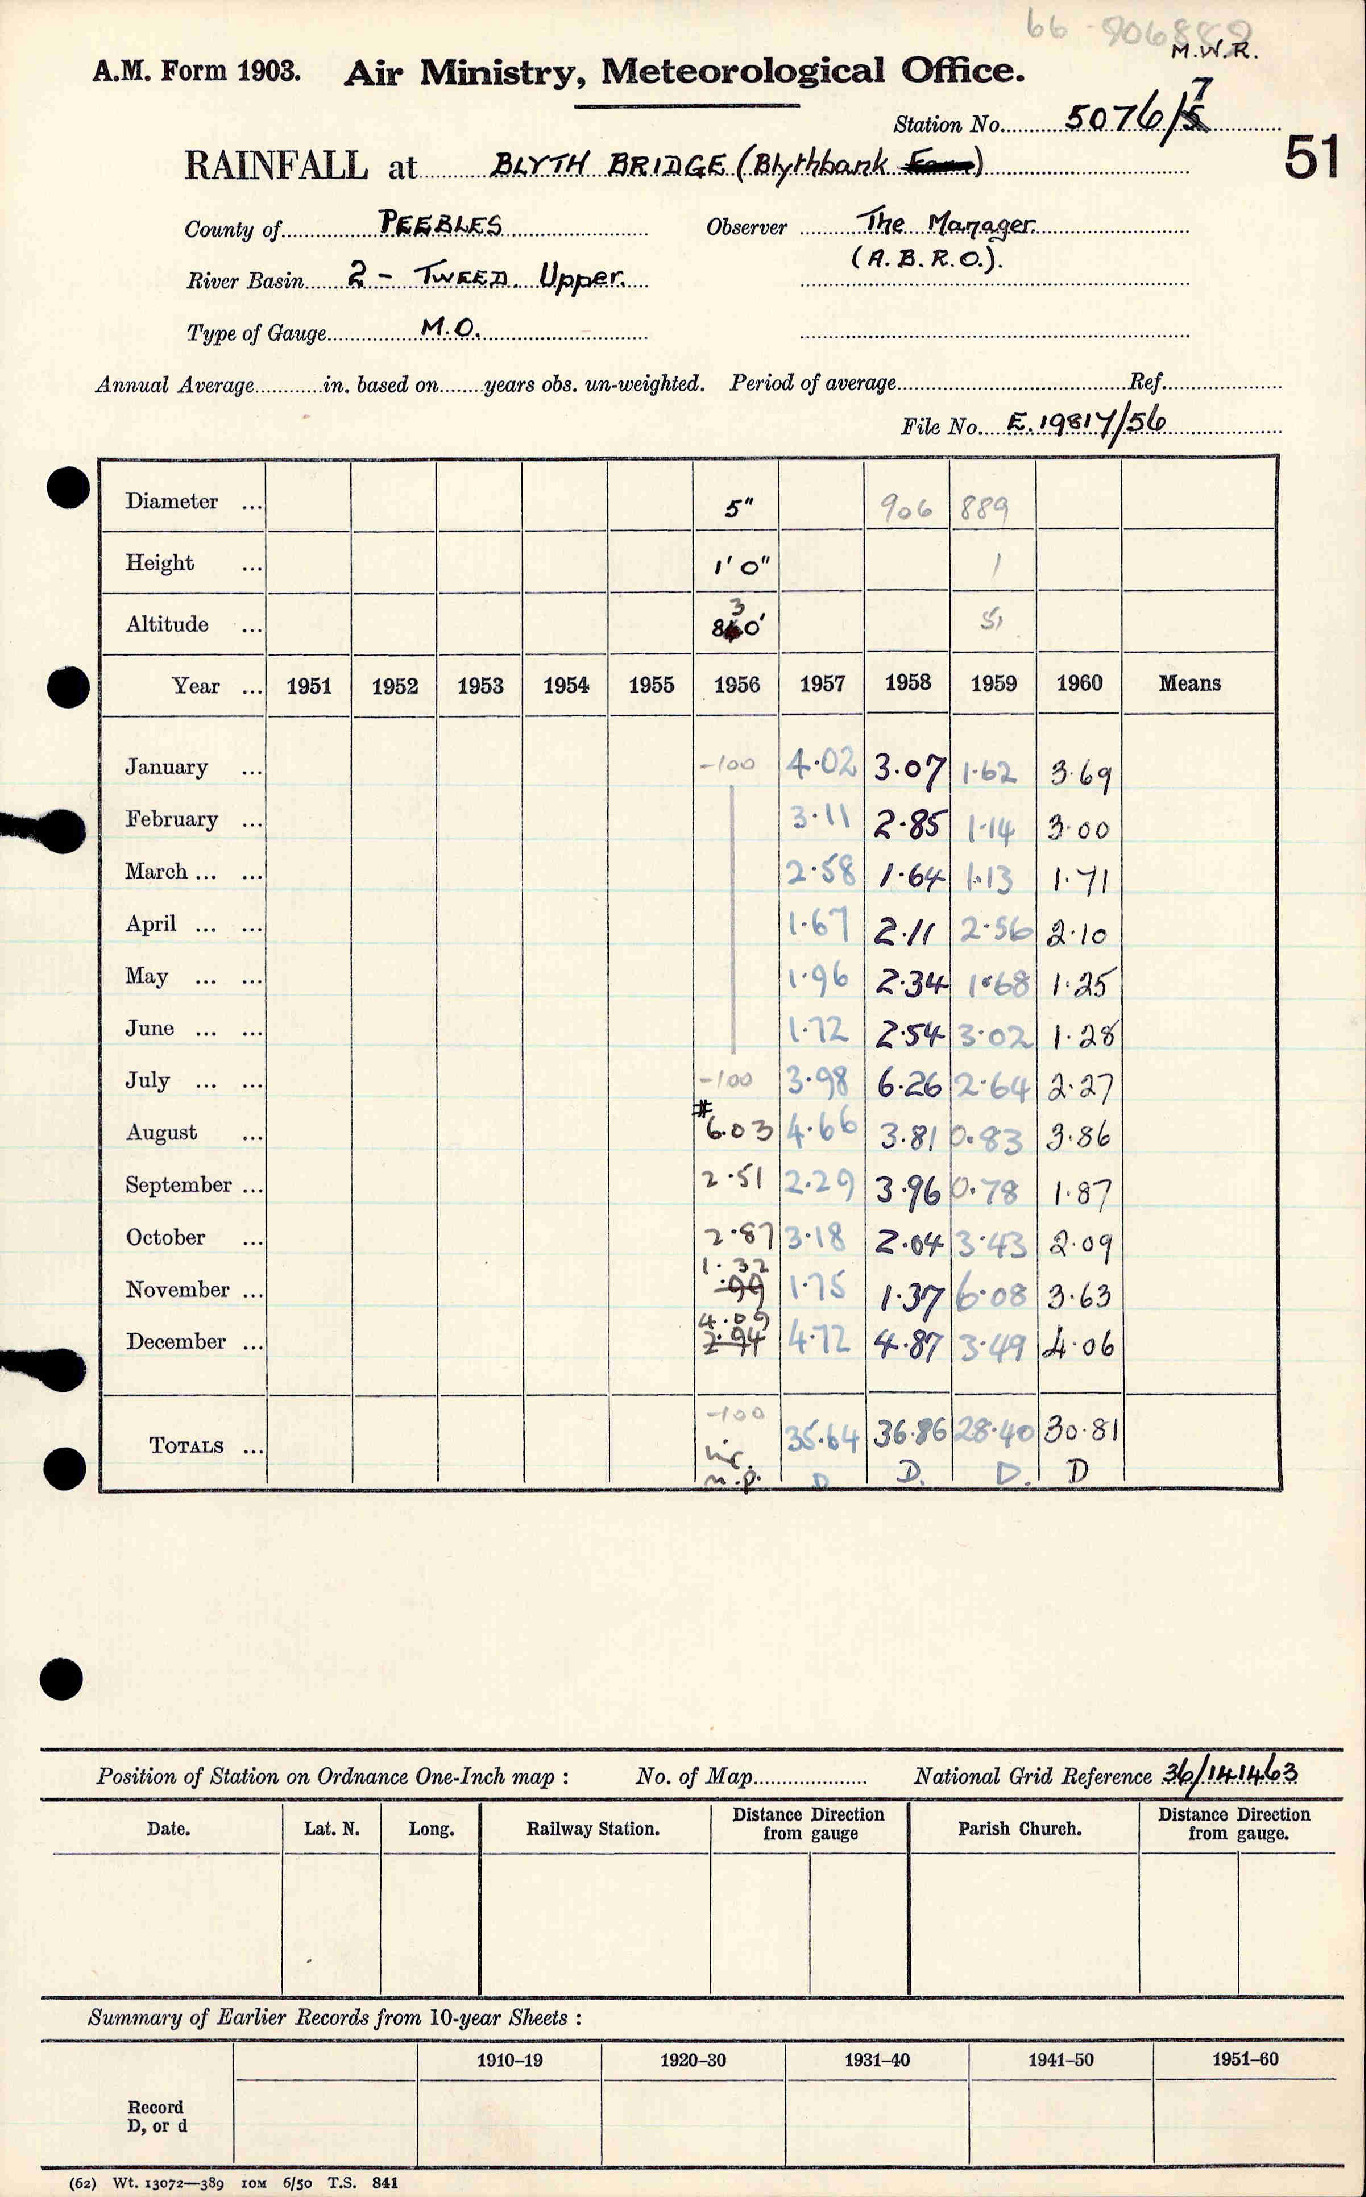 66-906889
M.W.R.
A.M. Form 1903. Air Ministry, Meteorological Office.
Station No. 5076/7
51
RAINFALL at BLYTH BRIDGE (Blythbank )
County of PEEBLES Observer The Manager.
(A.B.R.O.).
River Basin 2 - TWEED. Upper.
Type of Gauge M.O.
Annual Average in. based on years obs. un-weighted. Period of average Ref.
File No. E.19817/56
Diameter ... 5" 906 889
Height ... 1' 0" 1
Altitude ... 830' 51
Year ... 1951 1952 1953 1954 1955 1956 1957 1958 1959 1960 Means
January ... -100 4.02 3.07 1.62 3.69
February ... 3.11 2.85 1.14 3.00
March ... ... 2.58 1.64 1.13 1.71
April ... ... 1.67 2.11 2.56 2.10
May ... ... 1.96 2.34 1.68 1.25
June ... ... 1.72 2.54 3.02 1.28
July ... ... -100 3.98 6.26 2.64 2.27
August ... # 6.03 4.66 3.81 0.83 3.86
September ... 2.51 2.29 3.96 0.78 1.87
October ... 2.87 3.18 2.04 3.43 2.09
November ... 1.32 .99 1.75 1.37 6.08 3.63
December ... 4.09 2.94 4.72 4.87 3.49 4.06
TOTALS ... -100 35.64 36.86 28.40 30.81
n.p. D D. D. D
Position of Station on Ordnance One-Inch map : No. of Map National Grid Reference 36/141463
Date. Lat. N. Long. Railway Station. Distance Direction from gauge Parish Church. Distance Direction from gauge.
Summary of Earlier Records from 10-year Sheets :
1910-19 1920-30 1931-40 1941-50 1951-60
Record
D, or d
(62) Wt. 13072—389 10M 6/50 T.S. 841